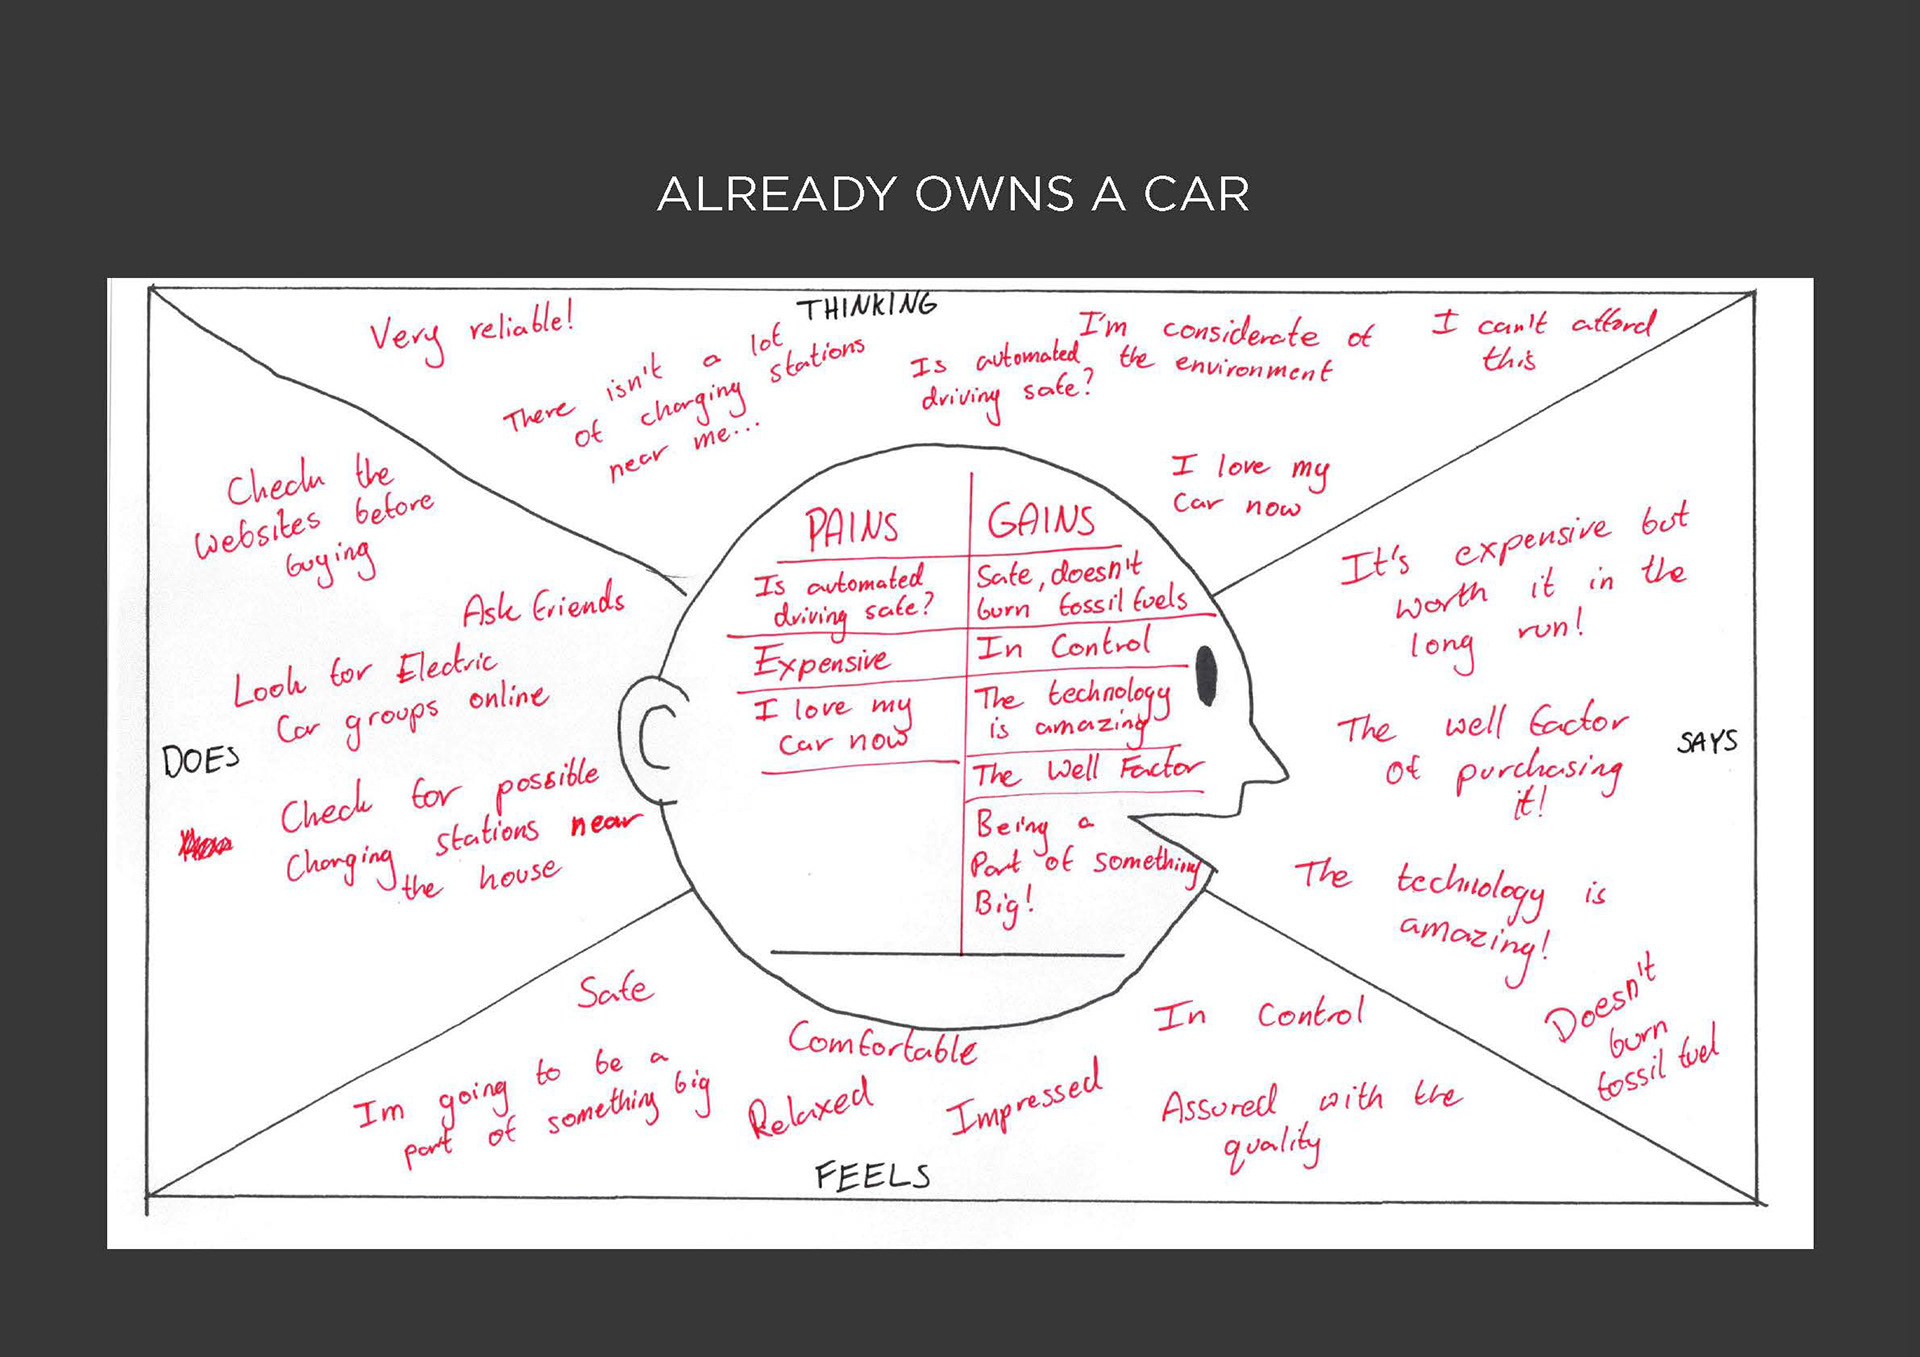 ALREADY OWNS A CAR
THINKING
Very reliable!
There isn't a lot
of charging stations
near me...
Is automated
driving safe?
I'm considerate of
the environment
I can't afford
this
I love my
car now
DOES
Check the
websites before
buying
Ask friends
Look for Electric
Car groups online
Check for possible
Charging stations near
the house
PAINS
Is automated
driving safe?
Expensive
I love my
car now
GAINS
Safe, doesn't
burn fossil fuels
In Control
The technology
is amazing
The Well Factor
Being a
Part of something
Big!
SAYS
It's expensive but
worth it in the
long run!
The well factor
of purchasing
it!
The technology is
amazing!
Doesn't
burn
fossil fuel
FEELS
Safe
Im going to be a
part of something big
Comfortable
Relaxed
Impressed
In Control
Assured with the
quality